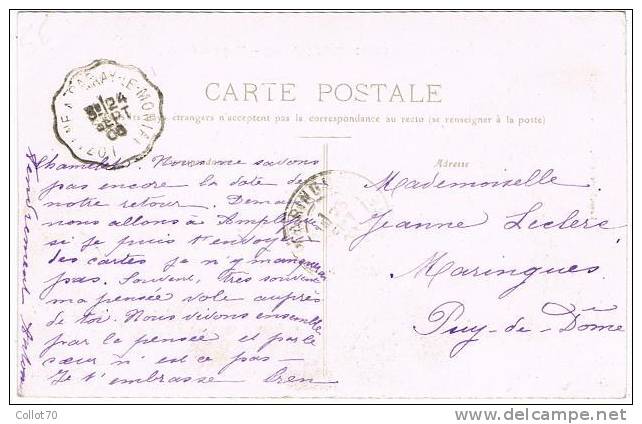 CARTE POSTALE
étrangers n'acceptent pas la correspondance au recto (se renseigner à la poste)
PARAY-LE-MONIAL
24
SEPT
08
Adresse
Mademoiselle
Jeanne Leclerc
Maringues
Puy-de-Dôme
Chamelet. Nous ne savons
pas encore la date de
notre retour. Demain
nous allons à Amplepuis
si je puis t'envoyer
des cartes je n'y manquerai
pas. Souvent, très souvent
ma pensée vole auprès
de toi. Nous vivons ensemble
par la pensée et par le
cœur n'est ce pas -
Je t'embrasse bien
tendrement
MARINGUES
Collot70
delcampe.net